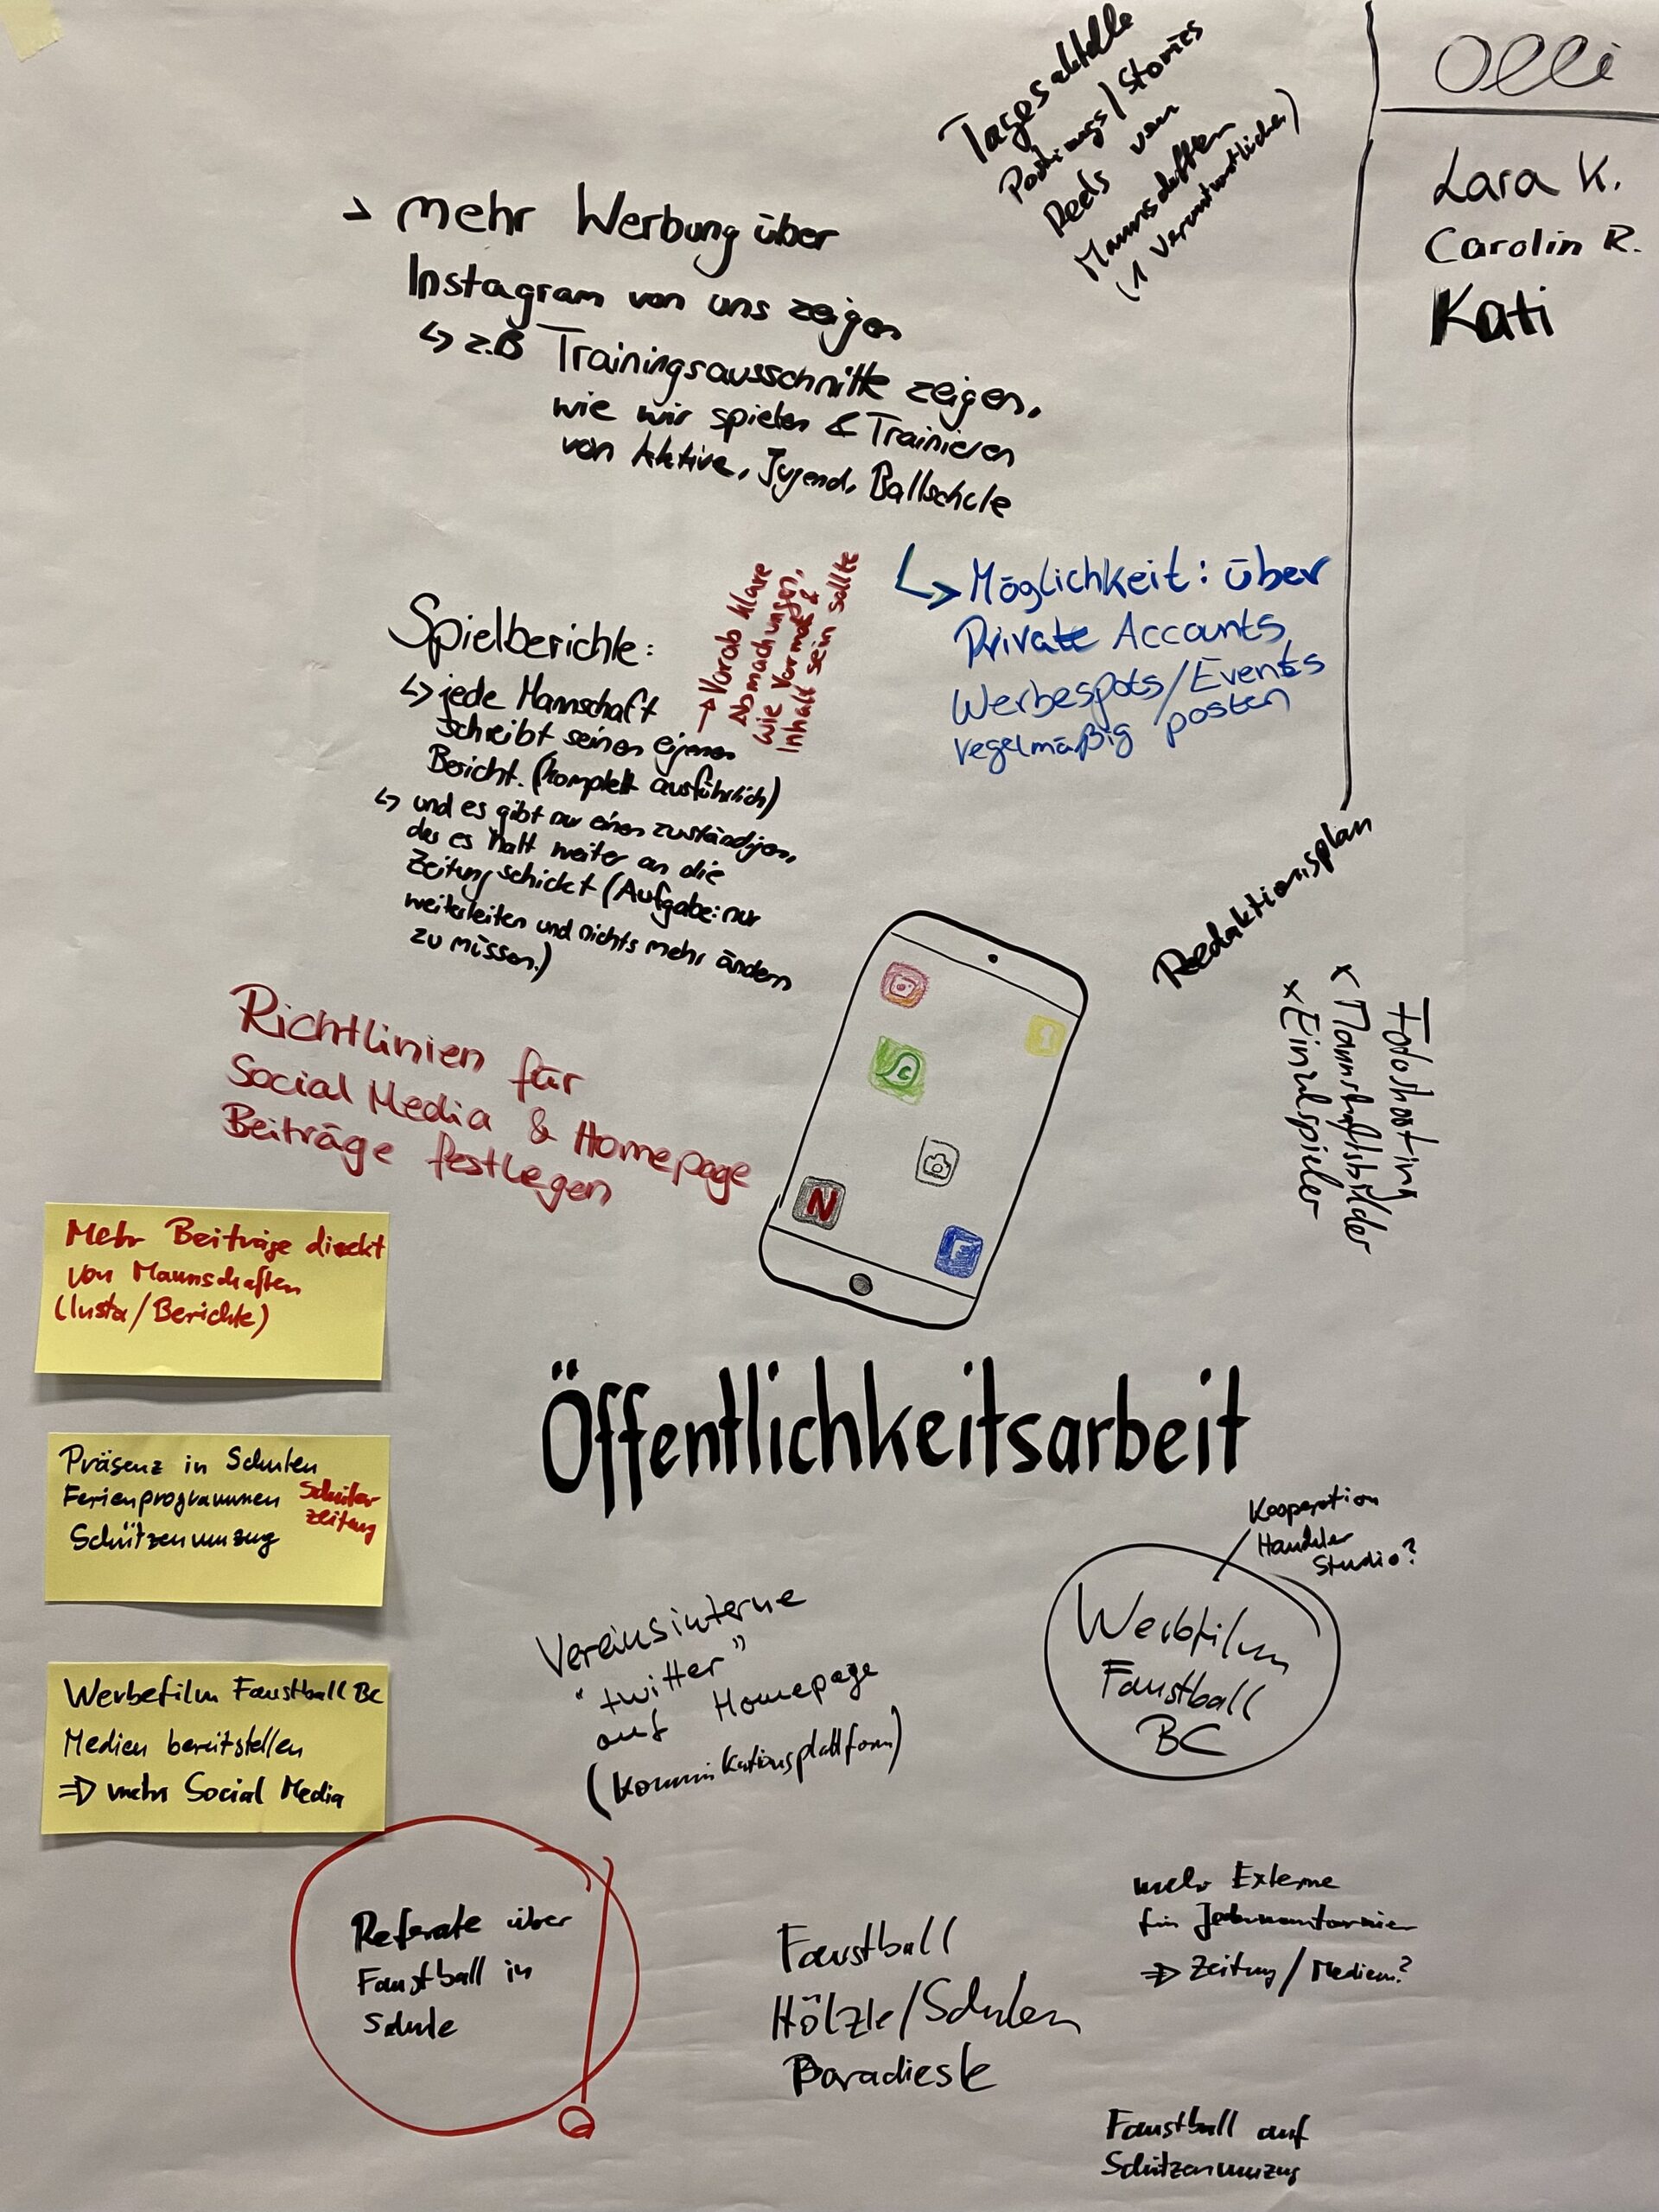 Tagesaktelle
Postings/Stories
Reels von
Mannschaften
(1 Verantwortlicher)
Olli
Lara K.
Carolin R.
Kati
→ mehr Werbung über
Instagram von uns zeigen
↳ z.B Trainingsausschnitte zeigen,
wie wir spielen & Trainieren
von Aktive, Jugend, Ballschule
↳ Möglichkeit: über
Private Accounts
Werbespots/Events
regelmäßig posten
Spielberichte:
↳ jede Mannschaft
schreibt seinen eigenen
Bericht. (komplett ausführlich)
↳ und es gibt nur einen zuständigen,
der es halt weiter an die
Zeitung schickt (Aufgabe: nur
weiterleiten und nichts mehr ändern
zu müssen.)
→ Vorab klare
Abmachungen,
wie Vormat &
Inhalt sein sollte
Redaktionsplan
Fotoshooting
x Mannschaftsbilder
x Einzelspieler
Richtlinien für
Social Media & Homepage
Beiträge festlegen
N
F
Mehr Beiträge direkt
von Mannschaften
(Insta/Berichte)
Öffentlichkeitsarbeit
Präsenz in Schulen
Ferienprogrammen
Schützenumzug
Schüler
zeitung
Kooperation
Händler
Studio?
Werbfilm
Faustball
BC
Vereinsinterne
"twitter"
auf Homepage
(Kommunikationsplattform)
Werbefilm Faustball BC
Medien bereitstellen
⇒ mehr Social Media
Referate über
Faustball in
Schule
Faustball
Hölzle/Schulen
Paradiesle
mehr Externe
für Jedermannturnier
⇒ Zeitung/Medien?
Faustball auf
Schützenumzug